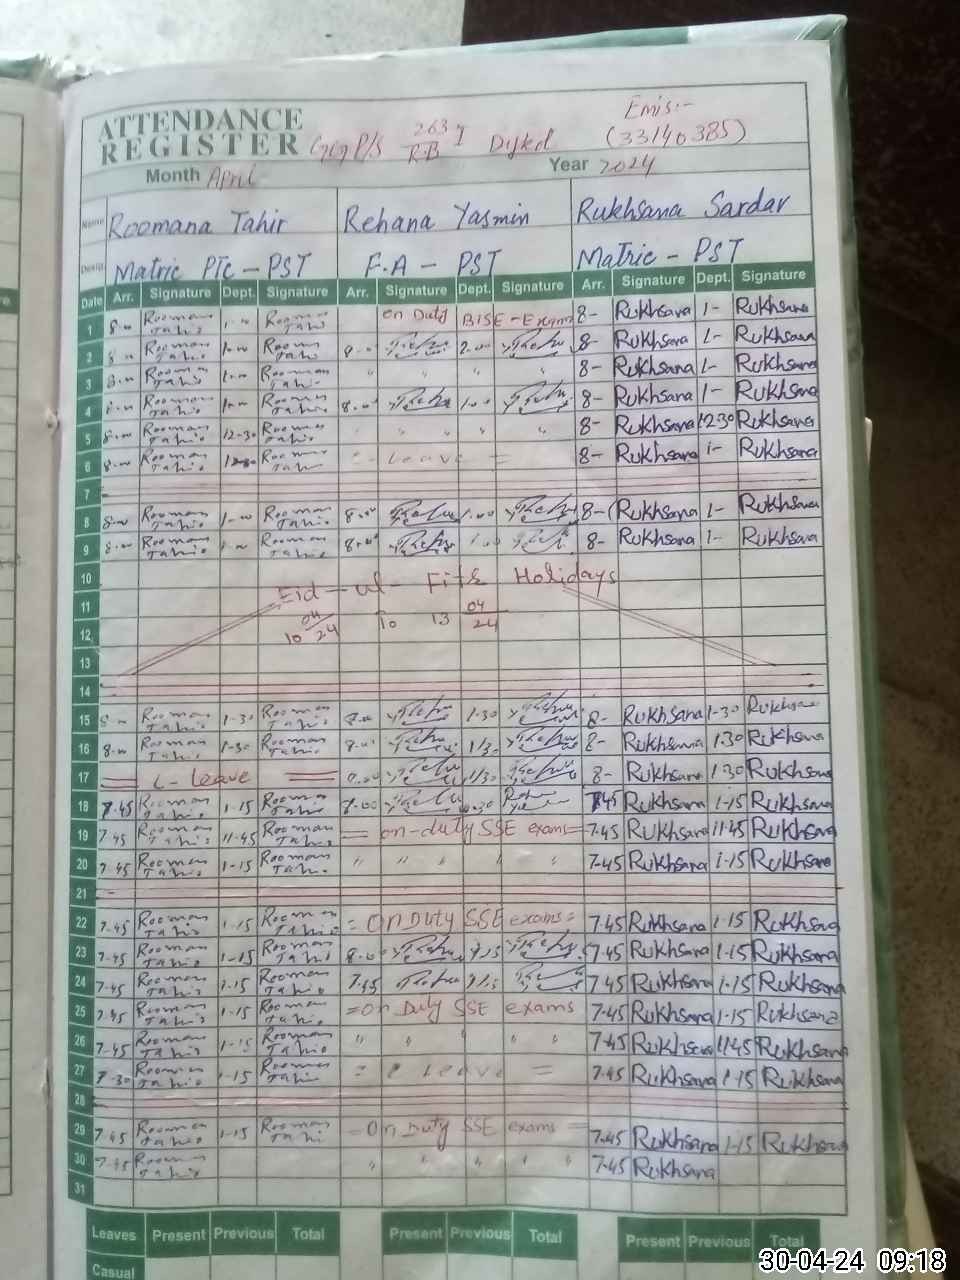 ATTENDANCE
REGISTER GGP/S 263 I R.B Dijkot Emis:- (33140385)
Month April Year 2024
Name Roomana Tahir Rehana Yasmin Rukhsana Sardar
Desig. Matric PTC - PST F.A - PST Matric - PST
Date Arr. Signature Dept. Signature Arr. Signature Dept. Signature Arr. Signature Dept. Signature
1 8-00 Rooman Tahir 1-00 Rooman Tahir on Duty BISE - Exam 8- Rukhsana 1- Rukhsana
2 8-00 Rooman Tahir 1-00 Rooman Tahir 8-00 8- Rukhsana 1- Rukhsana
3 8-00 Rooman Tahir 1-00 Rooman Tahir " " " " 8- Rukhsana 1- Rukhsana
4 8-00 Rooman Tahir 1-00 Rooman Tahir 8-00 1-00 8- Rukhsana 1- Rukhsana
5 8-00 Rooman Tahir 12-30 Rooman Tahir " " " " 8- Rukhsana 12-30 Rukhsana
6 8-00 Rooman Tahir Rooman Tahir Leave 8- Rukhsana 1- Rukhsana
7
8 8-00 Rooman Tahir 1-00 Rooman Tahir 8-00 1-00 8- Rukhsana 1- Rukhsana
9 8-00 Rooman Tahir 1-00 Rooman Tahir 8-00 1-00 8- Rukhsana 1- Rukhsana
10 Eid-ul-Fitr Holidays
11 10 04/24 To 13 04/24
12
13
14
15 8-00 Rooman Tahir 1-30 Rooman Tahir 8-00 1-30 8- Rukhsana 1-30 Rukhsana
16 8-00 Rooman Tahir 1-30 Rooman Tahir 8-00 1/30 8- Rukhsana 1-30 Rukhsana
17 Leave 1/30 8- Rukhsana 1-30 Rukhsana
18 7-45 Rooman Tahir 1-15 Rooman Tahir 7-45 Rukhsana 1-15 Rukhsana
19 7-45 Rooman Tahir 11-45 Rooman Tahir = on-duty SSE exams = 7-45 Rukhsana 11-45 Rukhsana
20 7-45 Rooman Tahir 1-15 Rooman Tahir " " " " " 7-45 Rukhsana 1-15 Rukhsana
21
22 7-45 Rooman Tahir 1-15 Rooman Tahir = On Duty SSE exams = 7-45 Rukhsana 1-15 Rukhsana
23 7-45 Rooman Tahir 1-15 Rooman Tahir 8-00 7-45 Rukhsana 1-15 Rukhsana
24 7-45 Rooman Tahir 1-15 Rooman Tahir 7-45 7-45 Rukhsana 1-15 Rukhsana
25 7-45 Rooman Tahir 1-15 Rooman Tahir = On Duty SSE exams 7-45 Rukhsana 1-15 Rukhsana
26 7-45 Rooman Tahir 1-15 Rooman Tahir " " " " 7-45 Rukhsana 11-45 Rukhsana
27 7-30 Rooman Tahir 1-15 Rooman Tahir = Leave = 7-45 Rukhsana 1-15 Rukhsana
28
29 7-45 Rooman Tahir 1-15 Rooman Tahir = On Duty SSE exams = 7-45 Rukhsana 1-15 Rukhsana
30 7-45 Rooman Tahir " " " " 7-45 Rukhsana
31
Leaves Present Previous Total Present Previous Total Present Previous Total
Casual
30-04-24 09:18